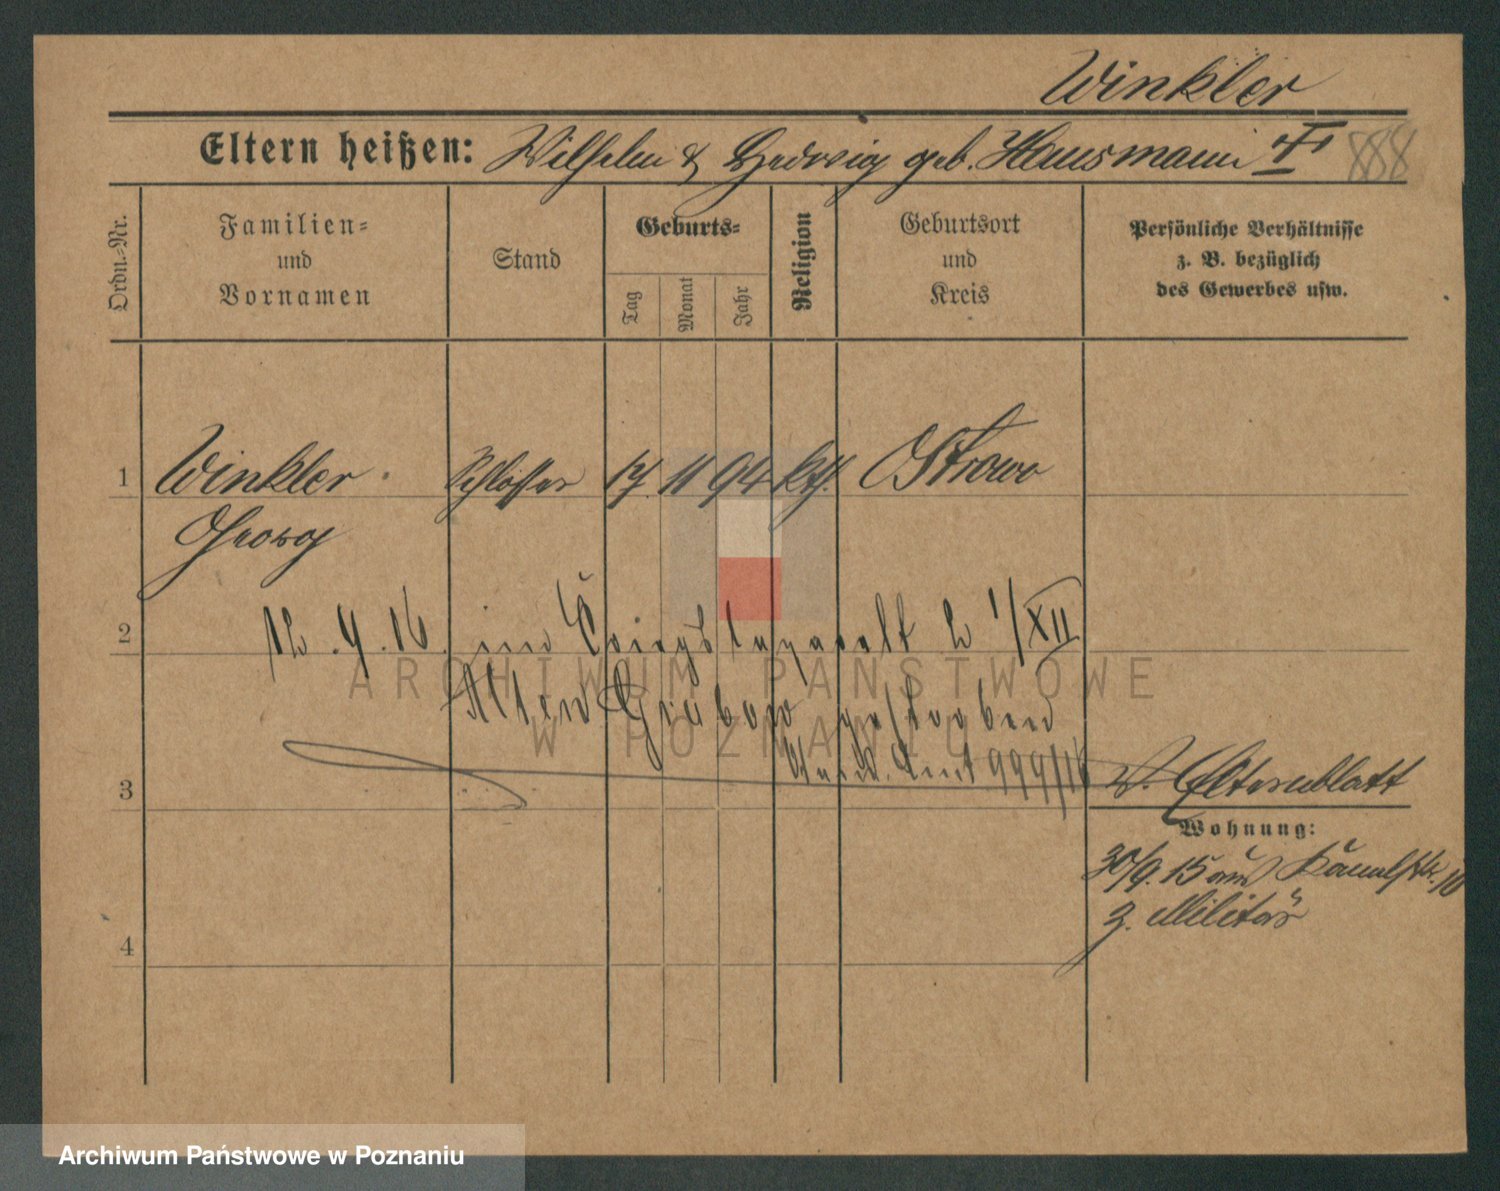 Winkler
Eltern heißen: Wilhelm & Hedwig geb. Hausmann
888
Ordn.-Nr.
Familien-
und
Vornamen
Stand
Geburts-
Tag
Monat
Jahr
Religion
Geburtsort
und
Kreis
Persönliche Verhältnisse
z. B. bezüglich
des Gewerbes usw.
1 Winkler Schlosser 17. 11 94 kth. Ostrowo
Georg
2 12.4.16. im Kriegslazarett 2 1/XII
Alten Grabow gestorben
Stand. Amt 999/16
3 s. Elternblatt
Wohnung:
30/9. 15 aus
z. Militär
4
ARCHIWUM PAŃSTWOWE
W POZNANIU
Archiwum Państwowe w Poznaniu